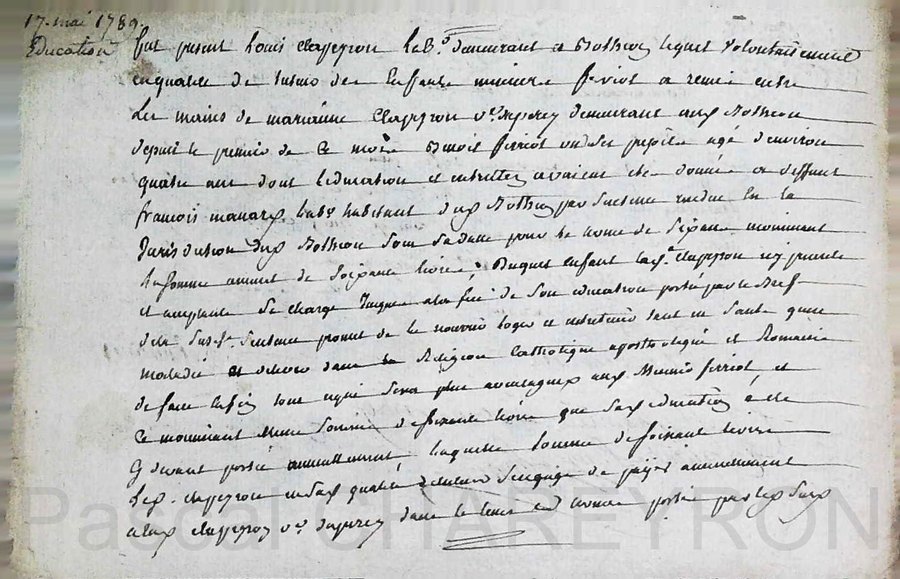 17. mai 1789.
Education
fut present Louis clapeyron hab.^t demeurant a Mothieu lequel volontairement
en qualité de tuteur des Enfants mineurs ferriot a remis entre
Les mains de marianne clapeyron v.^e demeurant aux Mothieu
depuis le premier de ce mois Benoit ferriot un des pupils agé denviron
quatre ans dont leducation et entretien avaient eté donnée a deffunt
francois hab.^t habitant par Sentence rendue En la
Jurisdiction Sous Sadatte pour le tems de Six ans moiennant
la somme annuel de Soixante livres, Duquel Enfant clapeyron icy presente
et acceptante Se charge Jusques a la fin de Son education porté par le
de la Susd.^e Sentence promet de le nourrir loger et entretenir tant en Santé quen
maladie et delever dans la Religion Catholique apostholique et Romaine
de faire tout ce qui Sera plus avantageux aux Mineurs ferriot, et
Ce moiennant Meme Somme de Soixante livres que education a eté
Cy devant portée annuellement laquelle Somme de Soixant livres
Led. clapeyron en qualité de tuteur Sengage de payer annuellement
a lad. clapeyron v.^e dans le tems et termes porté par
Pascal CHAREYRON